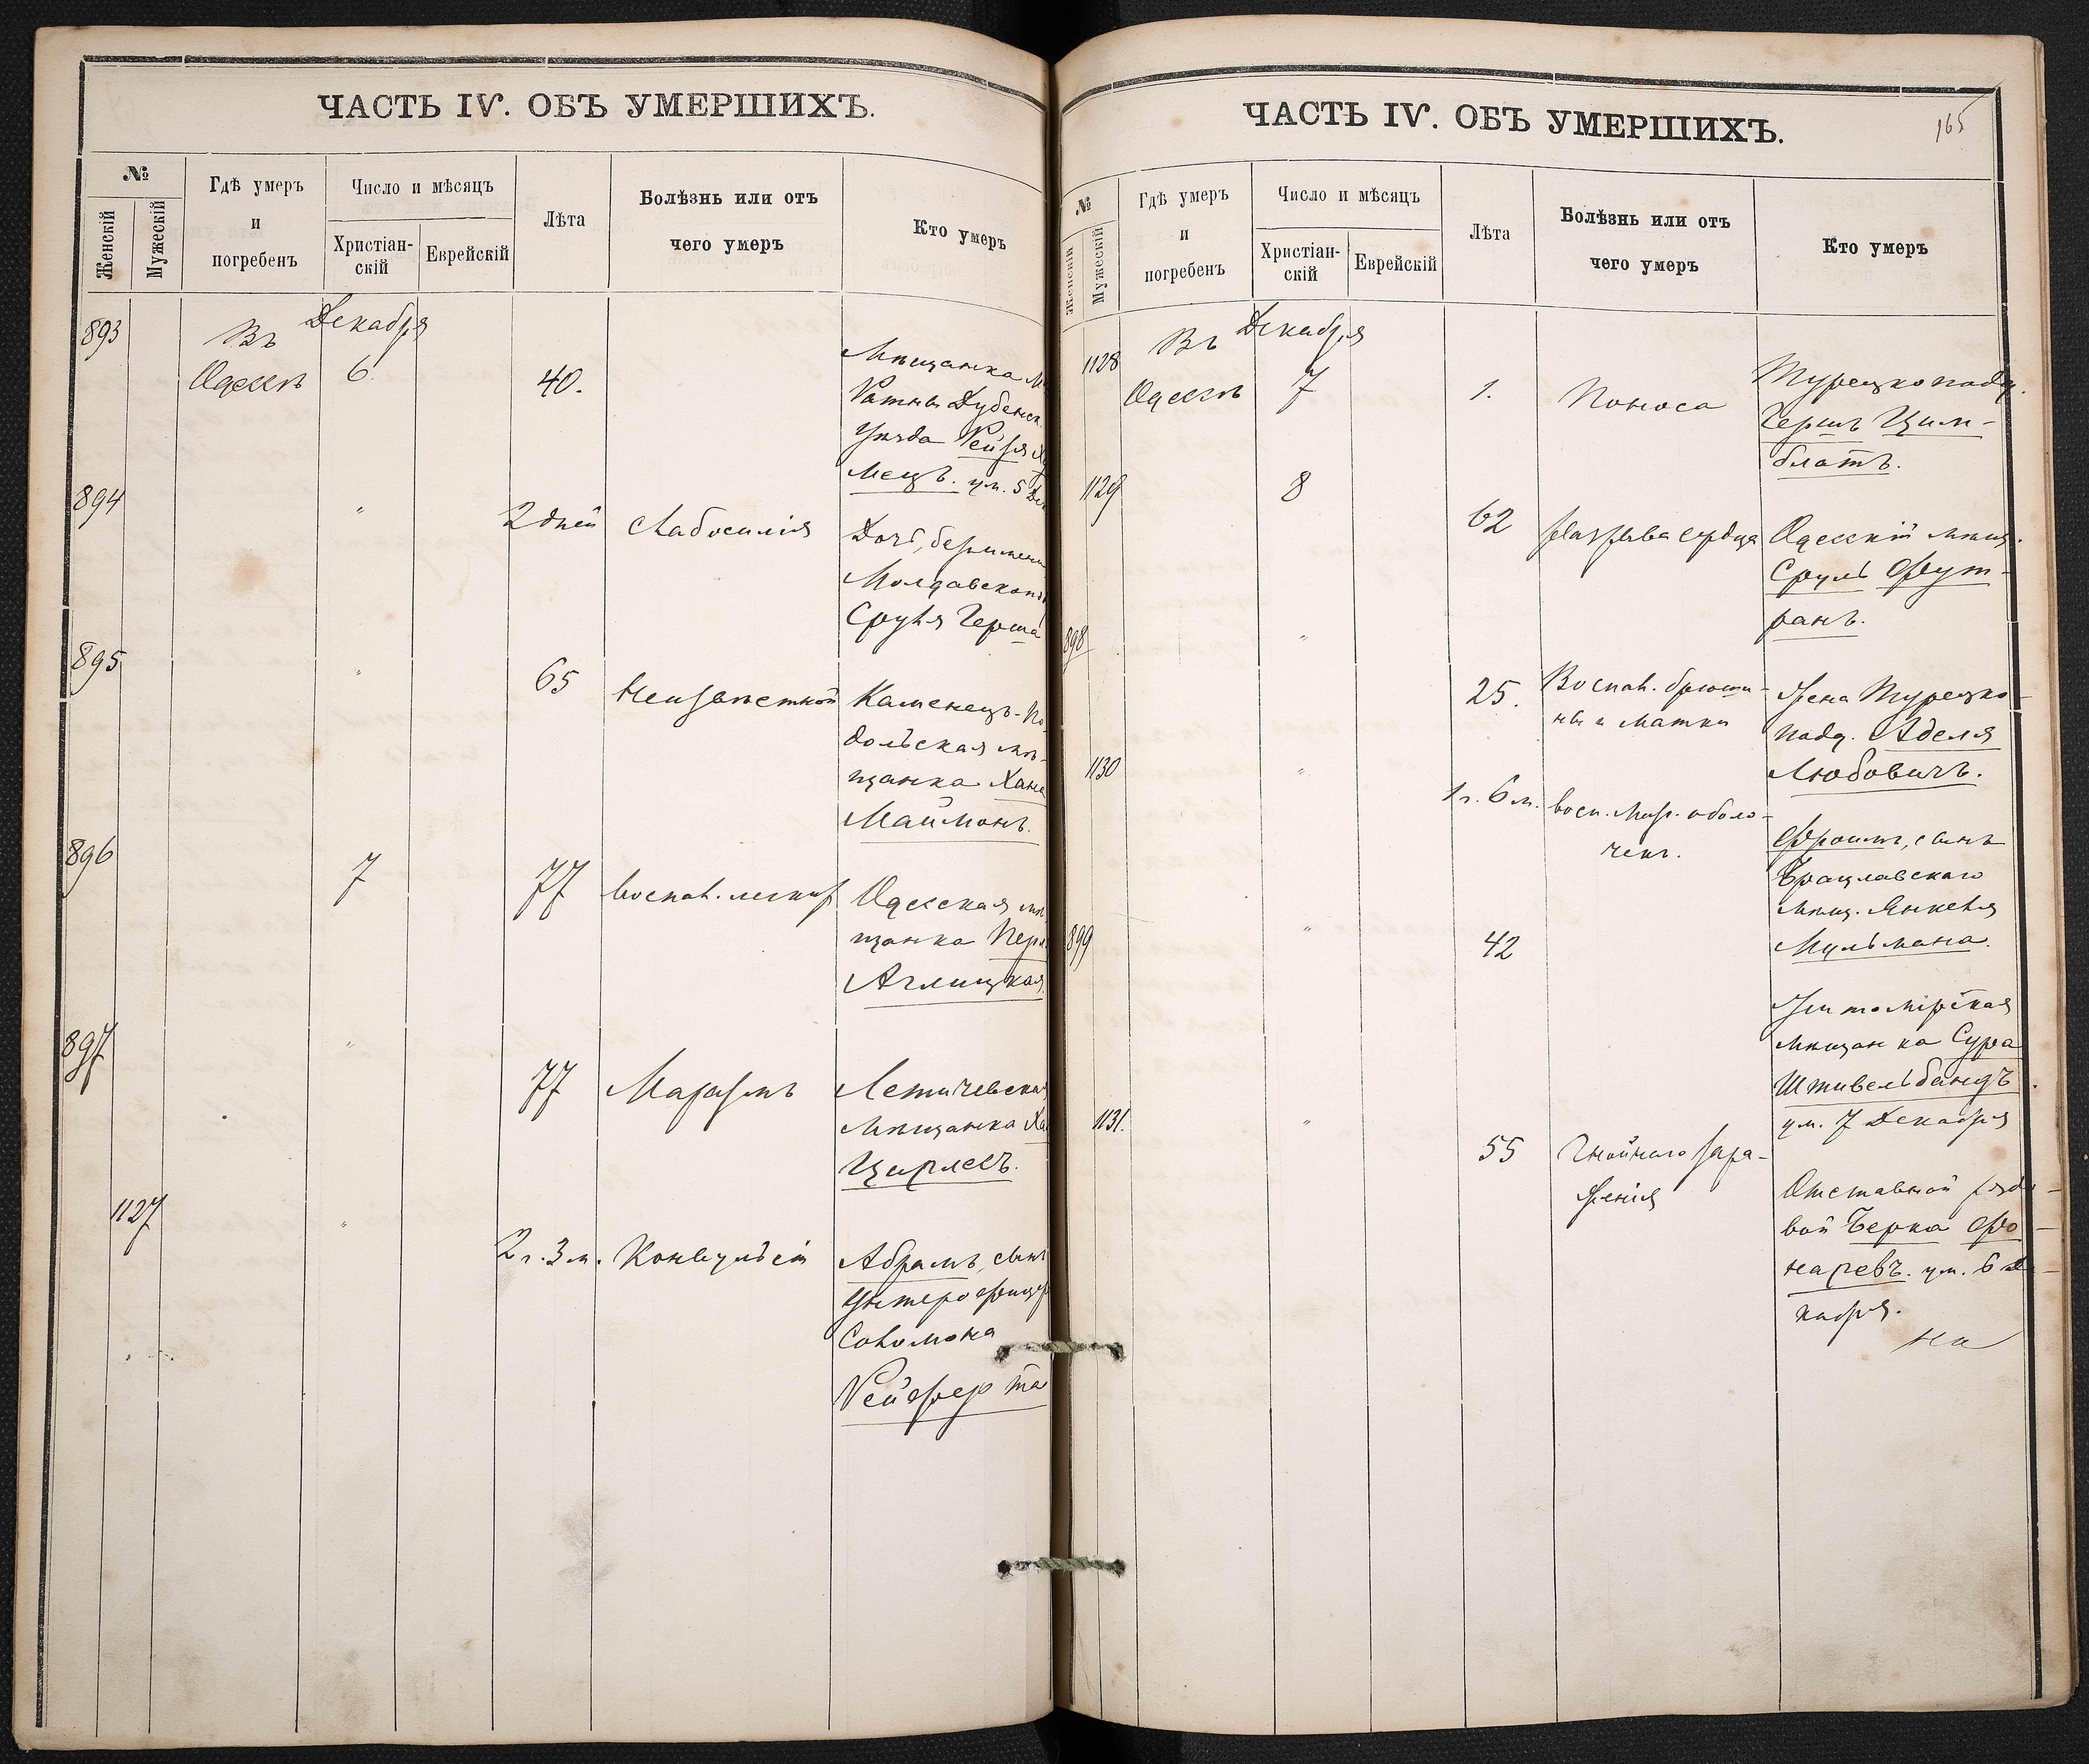 ЧАСТЬ IV. ОБЪ УМЕРШИХЪ.
№
Женскій
Мужескій
Гдѣ умеръ
и
погребенъ
Число и мѣсяцъ
Христіан-
скій
Еврейскій
Лѣта
Болѣзнь или отъ
чего умеръ
Кто умеръ
893
Въ Декабря
Одессѣ 6. 40.
Мѣщанка
Ратны Дубенск.
Уѣзда Рейзя
Мецъ. ум. 5 Де
894 " 2 дней Слабосилія
Дочь, беременн
Молдавскопод
Сруля Герша
895 " 65 Неизвѣстной
Каменецъ-По
дольская мѣ-
щанка Хана
Маймонъ.
896 7 77 Воспал. легких
Одесская мѣ
щанка Перл
Аглицкая.
897 " 77 Маразмъ
Летичевская
Мѣщанка Ха
Цирлесъ.
1127 " 2 г. 3 м. Конвульсій
Абрамъ, сынъ
Унтерофицер
Соломона
Рейферта
ЧАСТЬ IV. ОБЪ УМЕРШИХЪ.
165
№
Женскій
Мужескій
Гдѣ умеръ
и
погребенъ
Число и мѣсяцъ
Христіан-
скій
Еврейскій
Лѣта
Болѣзнь или отъ
чего умеръ
Кто умеръ
1128
Въ Декабря
Одессѣ 7 1. Поноса
Турецкоподд.
Гершъ Цим-
блатъ.
1129 8 62 Разрыва сердца
Одесскій мѣщ.
Сруль Фут-
ранъ.
898 " 25. Воспал. брюши-
ны и матки
Жена Турецко-
подд. Аделя
Любовичъ.
1130 " 1 г. 6 м. восп. мозг. оболо-
чекъ.
Фроимъ, сынъ
Брацлавскаго
мѣщ. Янкеля
Мульмана.
899 " 42
Житомірская
мѣщанка Сура
Штивельбандъ
ум. 7 Декабря
1131. " 55 Гнойнаго зара-
женія
Отставной рядо-
вой Берка Фо-
наревъ. ум. 6 Де-
кабря.
на